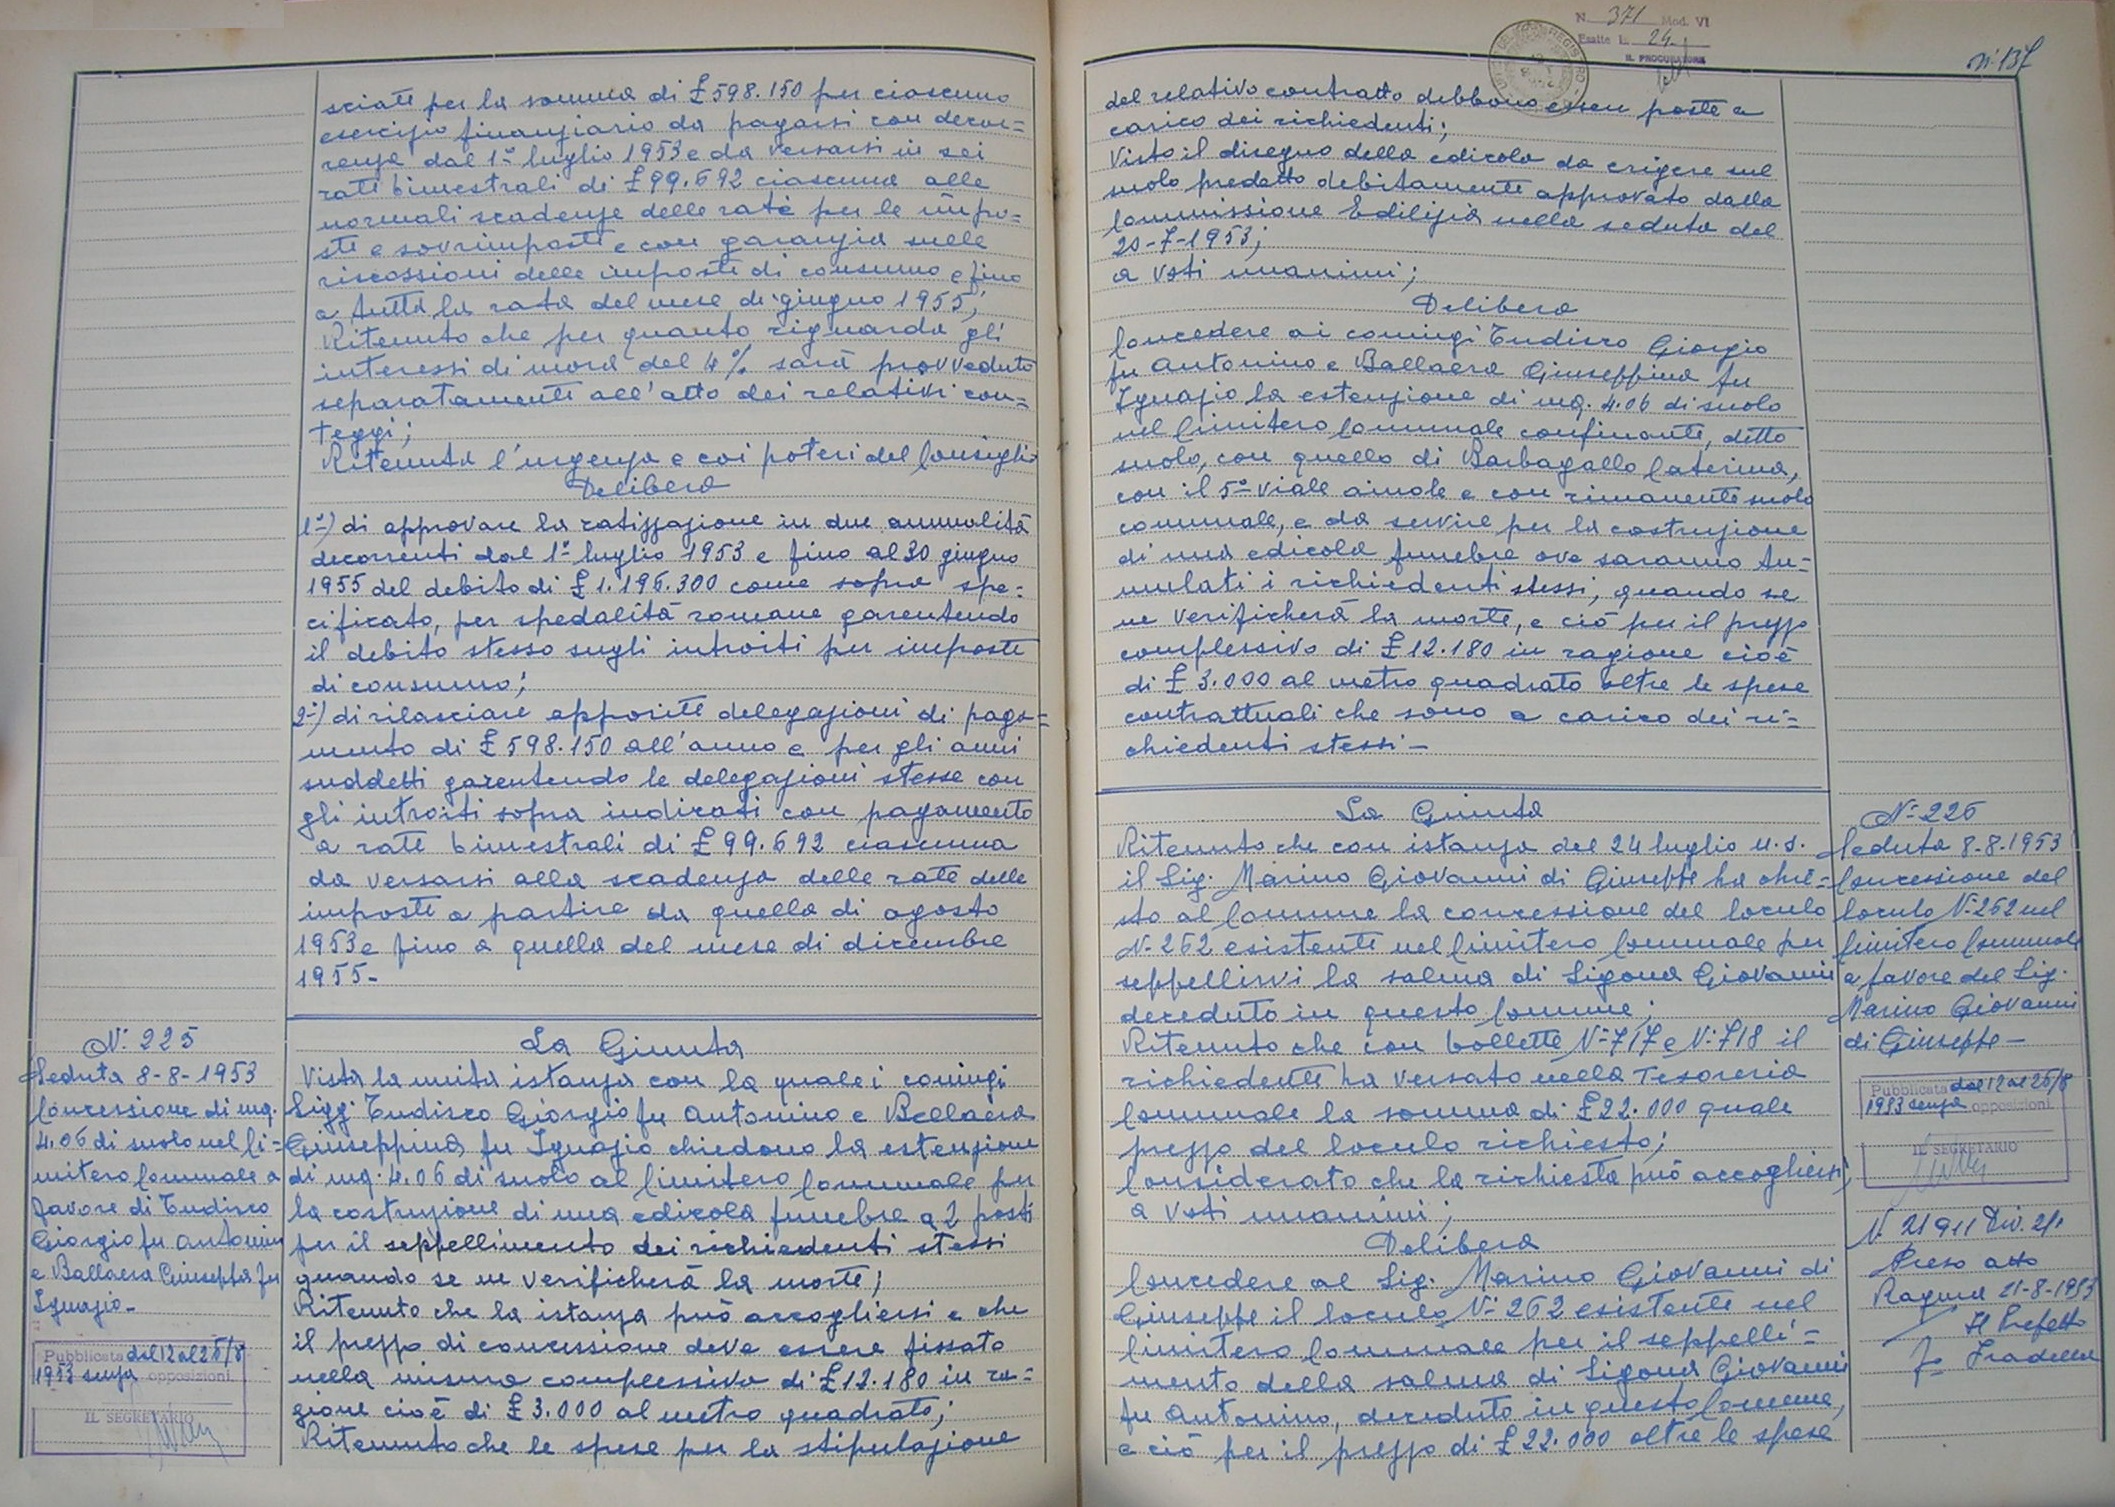 sciate per la somma di £ 598.150 per ciascuno
esercizio finanziario da pagarsi con decor=
renza dal 1° luglio 1953 e da versarsi in sei
rate bimestrali di £ 99.692 ciascuna alle
normali scadenze delle rate per le impo=
ste e sovrimposte e con garanzia sulle
riscossioni delle imposte di consumo e fino
a tutta la rata del mese di giugno 1955;
Ritenuto che per quanto riguarda gli
interessi di mora del 4% sarà provveduto
separatamente all'atto dei relativi con=
teggi;
Ritenuta l'urgenza e coi poteri del Consiglio
Delibera
1°) di approvare la ratizzazione in due annualità
decorrenti dal 1° luglio 1953 e fino al 30 giugno
1955 del debito di £ 1.196.300 come sopra spe=
cificato, per spedalità romane garentendo
il debito stesso sugli introiti per imposte
di consumo;
2°) di rilasciare apposite delegazioni di paga=
mento di £ 598.150 all'anno e per gli anni
suddetti garentendo le delegazioni stesse con
gli introiti sopra indicati con pagamento
a rate bimestrali di £ 99.692 ciascuna
da versarsi alla scadenza delle rate delle
imposte a partire da quella di agosto
1953 e fino a quella del mese di dicembre
1955-
N° 225
Seduta 8-8-1953
Concessione di mq.
4.06 di suolo nel Ci=
mitero Comunale a
favore di Tudisco
Giorgio fu Antonino
e Ballaera Giuseppa fu
Ignazio-
Pubblicata dal 12 al 25/8
1953 senza opposizioni
IL SEGRETARIO
La Giunta
Vista la unita istanza con la quale i coniugi
Sigg. Tudisco Giorgio fu Antonino e Bellaera
Giuseppina fu Ignazio chiedono la estenzione
di mq. 4.06 di suolo al Cimitero Comunale per
la costruzione di una edicola funebre a 2 posti
per il seppellimento dei richiedenti stessi
quando se ne verificherà la morte;
Ritenuto che la istanza può accogliersi e che
il prezzo di concessione deve essere fissato
nella misura complessiva di £ 12.180 in ra=
gione cioè di £ 3.000 al metro quadrato;
Ritenuto che le spese per la stipulazione
N. 371 Mod. VI
Esatte L. 24.
IL PROCURATORE
n° 137
del relativo contratto debbono essere poste a
carico dei richiedenti;
Visto il disegno della edicola da erigere sul
suolo predetto debitamente approvato dalla
Commissione Edilizia nella seduta del
20-7-1953;
a voti unanimi;
Delibera
Concedere ai coniugi Tudisco Giorgio
fu Antonino e Ballaera Giuseppina fu
Ignazio la estenzione di mq. 4.06 di suolo
nel Cimitero Comunale confinante, detto
suolo, con quello di Barbagallo Caterina,
con il 5° viale aiuole e con rimanente suolo
comunale, e da servire per la costruzione
di una edicola funebre ove saranno tu=
mulati i richiedenti stessi, quando se
ne verificherà la morte, e ciò per il prezzo
complessivo di £ 12.180 in ragione cioè
di £ 3.000 al metro quadrato oltre le spese
contrattuali che sono a carico dei ri=
chiedenti stessi-
La Giunta
Ritenuto che con istanza del 24 luglio u.s.
il Sig. Marino Giovanni di Giuseppe ha chie=
sto al Comune la concessione del loculo
N° 262 esistente nel Cimitero Comunale per
seppellirvi la salma di Sigona Giovanni
deceduto in questo Comune;
Ritenuto che con bollette N° 717 e N° 718 il
richiedente ha versato nella Tesoreria
Comunale la somma di £ 22.000 quale
prezzo del loculo richiesto;
Considerato che la richiesta può accogliersi;
a voti unanimi;
Delibera
Concedere al Sig. Marino Giovanni di
Giuseppe il loculo N° 262 esistente nel
Cimitero Comunale per il seppelli=
mento della salma di Sigona Giovanni
fu Antonino, deceduto in questo Comune,
e ciò per il prezzo di £ 22.000 oltre le spese
N° 226
Seduta 8.8.1953
Concessione del
loculo N° 262 nel
Cimitero Comunale
a favore del Sig.
Marino Giovanni
di Giuseppe-
Pubblicata dal 12 al 25/8
1953 senza opposizioni
IL SEGRETARIO
N. 21911 Div. 2/1
Preso atto
Ragusa 21-8-1953
Il Prefetto